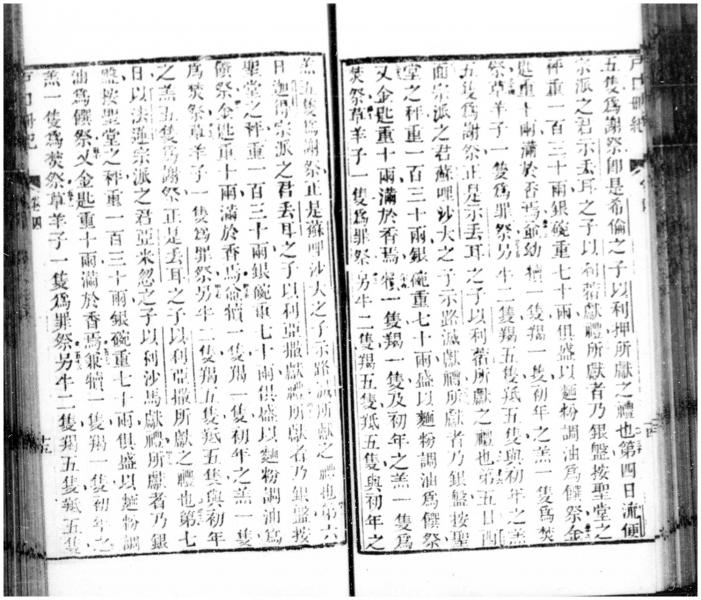 戶口冊紀
五隻為謝祭卽是希倫之子以利押所獻之禮也第四日流便
宗派之君示丟耳之子以利蓿獻禮所獻者乃銀盤按聖堂之
秤重一百三十兩銀碗重七十兩俱盛以麵粉調油為饌祭金
匙重十兩滿於香焉爺幼犢一隻羯一隻初年之羔一隻為焚
祭草羊子一隻為罪祭另牛二隻羯五隻羝五隻與初年之羔
五隻為謝祭正是示丟耳之子以利蓿所獻之禮也第五日西
面宗派之君蘇哩沙大之子示路滅獻禮所獻者乃銀盤按聖
堂之秤重一百三十兩銀碗重七十兩盛以麵粉調油為饌祭
又金匙重十兩滿於香焉犢一隻羯一隻及初年之羔一隻為
焚祭草羊子一隻為罪祭另牛二隻羯五隻羝五隻與初年之
羔五隻為謝祭正是蘇哩沙大之子示路滅所獻之禮也第六
日迦得宗派之君丟耳之子以利亞撒獻禮所獻者乃銀盤按
聖堂之秤重一百三十兩銀碗重七十兩俱盛以麵粉調油為
饌祭金匙重十兩滿於香焉爺犢一隻羯一隻初年之羔一隻
為焚祭草羊子一隻為罪祭另牛二隻羯五隻羝五隻與初年
之羔五隻為謝祭正是丟耳之子以利亞撒所獻之禮也第七
日以法蓮宗派之君亞米忽之子以利沙馬獻禮所獻者乃銀
盤按聖堂之秤重一百三十兩銀碗重七十兩俱盛以麵粉調
油為饌祭又金匙重十兩滿於香焉犢一隻羯一隻初年之
羔一隻為焚祭草羊子一隻為罪祭另牛二隻羯五隻羝五隻
戶口冊紀 卷四